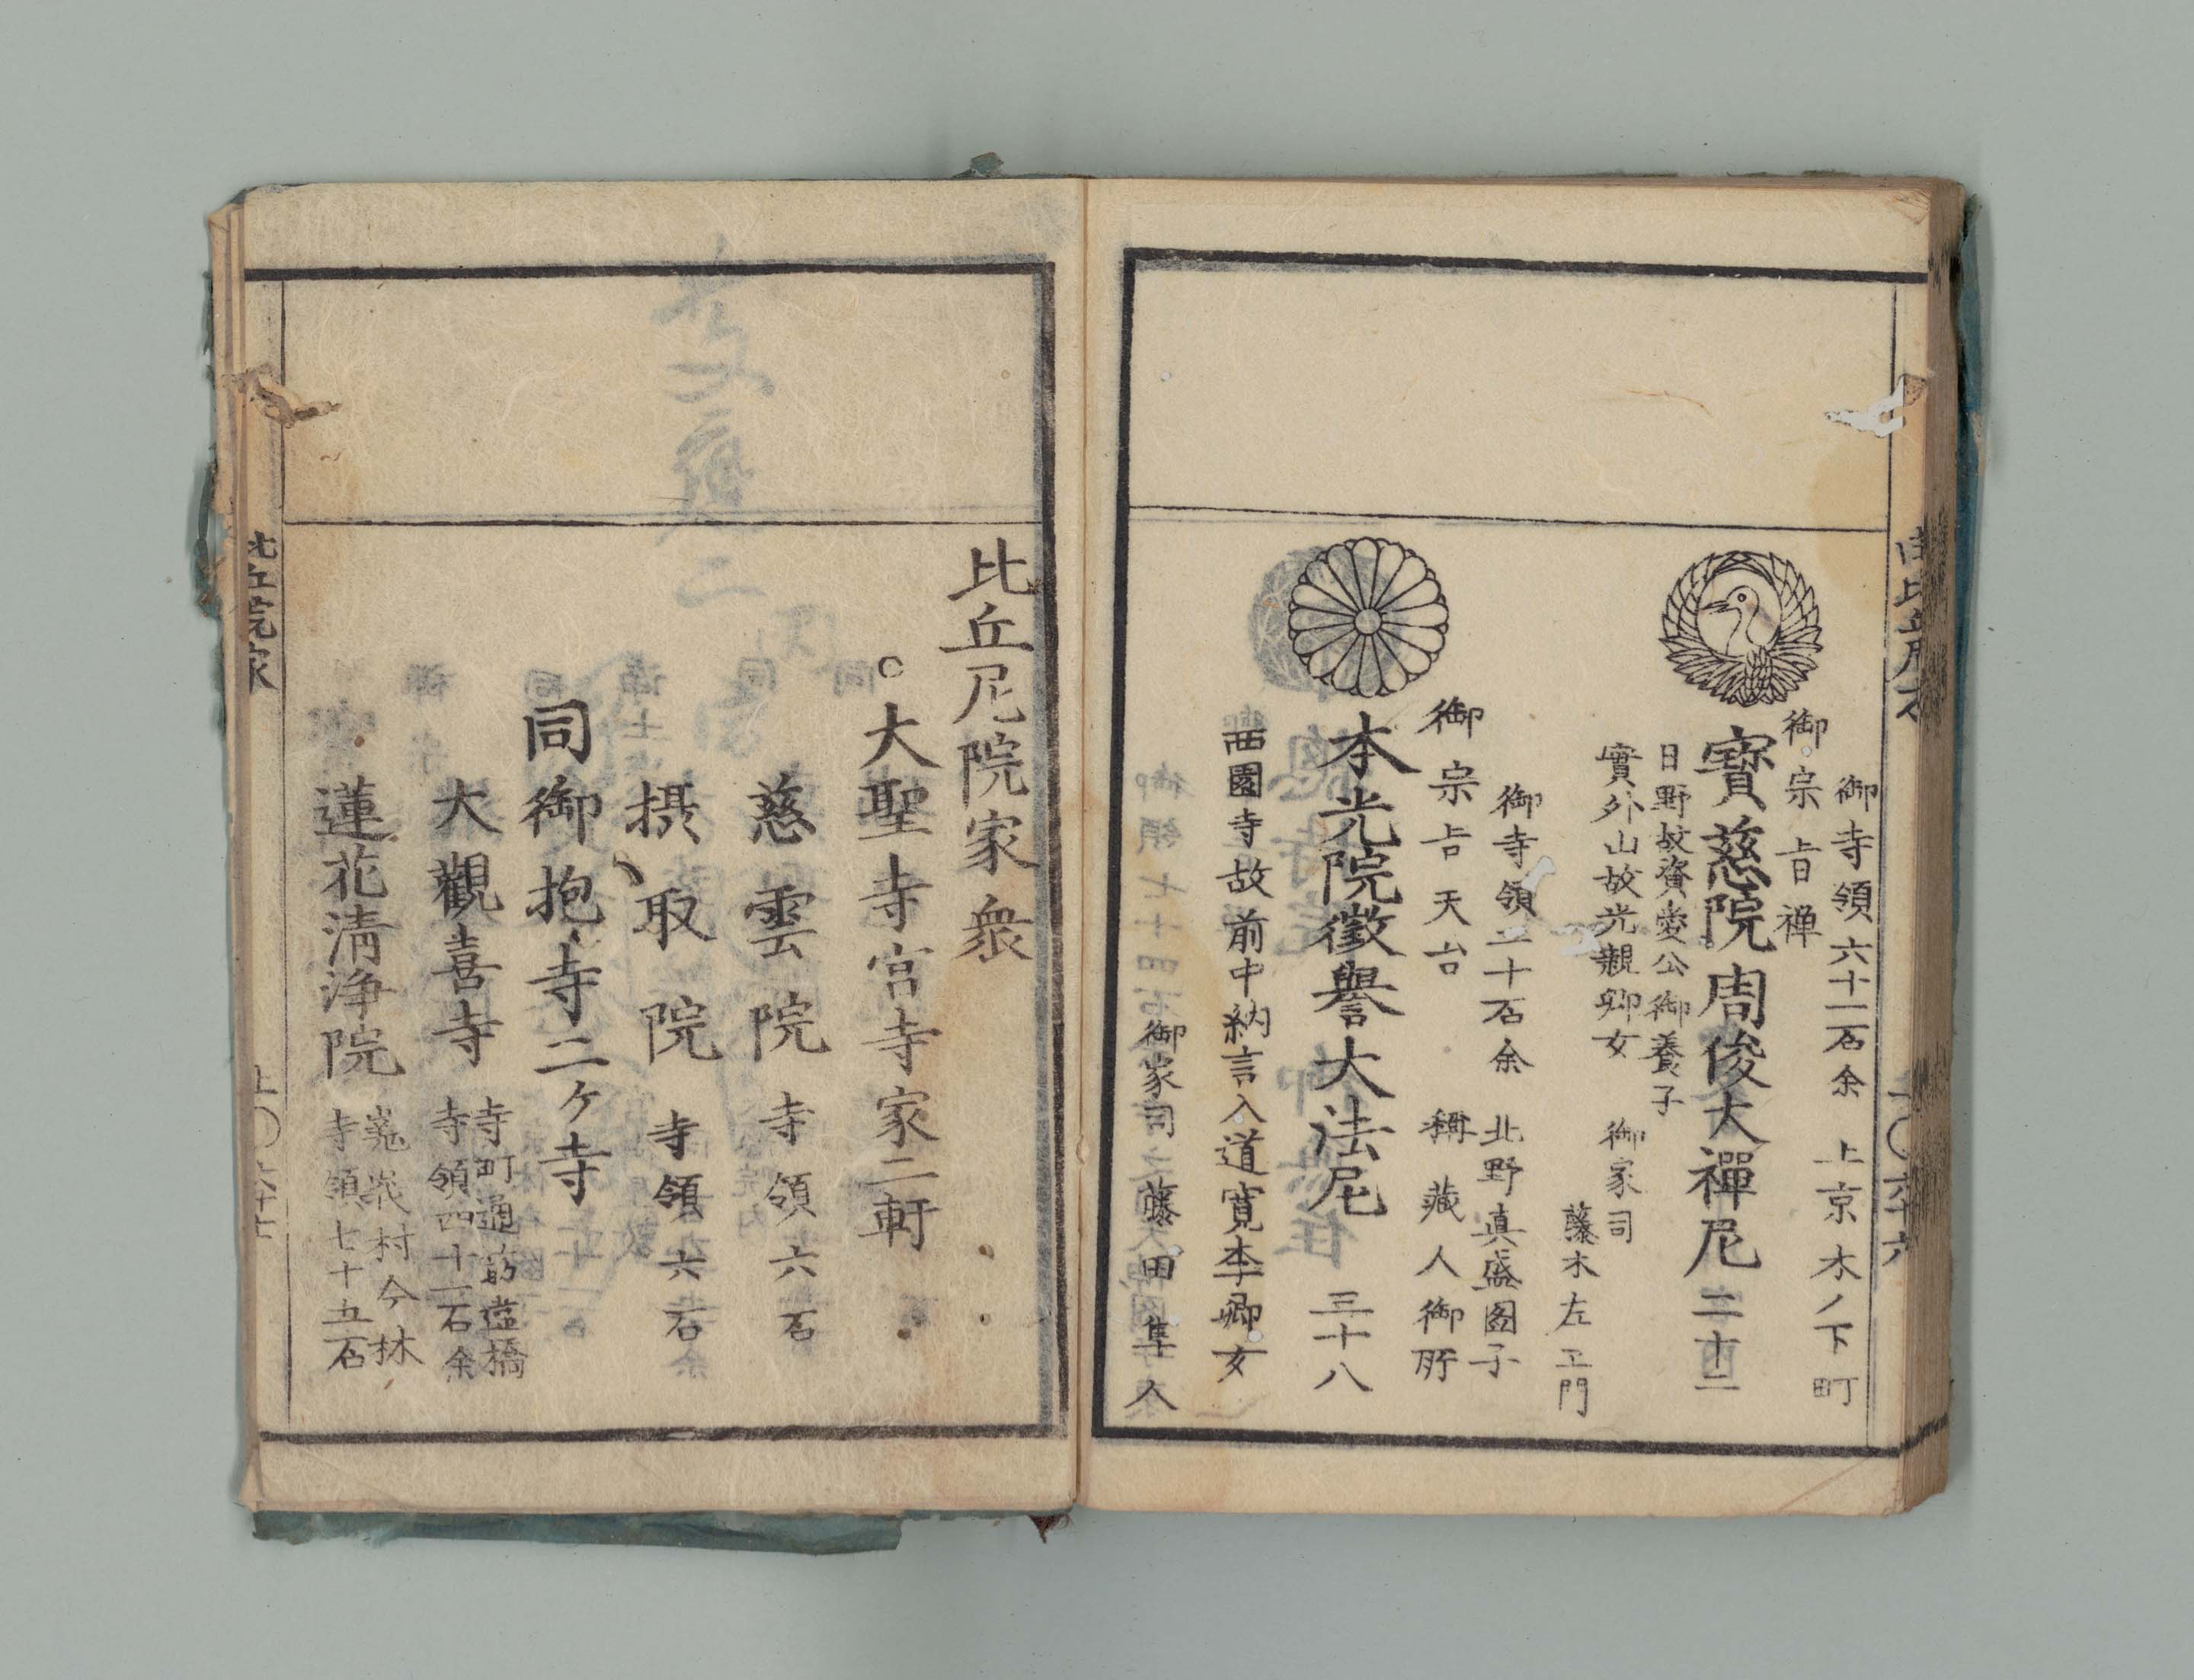 御寺領六十二石余　上京木ノ下町
御宗旨禅
寳慈院周俊大禪尼　二十二
日野故資愛公御養子
實外山故光親卿女
御家司
藤木左卫門
御寺領二十石余　北野真盛図子
御宗旨天台　称藏人御所
本光院徴譽大法尼　三十八
西園寺故前中納言入道寛季卿女
御家司　藤田隼人
比丘尼院家衆
○大聖寺宮寺家二軒
慈雲院　寺領六石
摂取院　寺領六石
同御抱寺二ヶ寺
大觀喜寺　寺町通鞍馬橋
寺領四十二石余
蓮花清浄院　嵬峩村今林
寺領七十五石
比丘院家